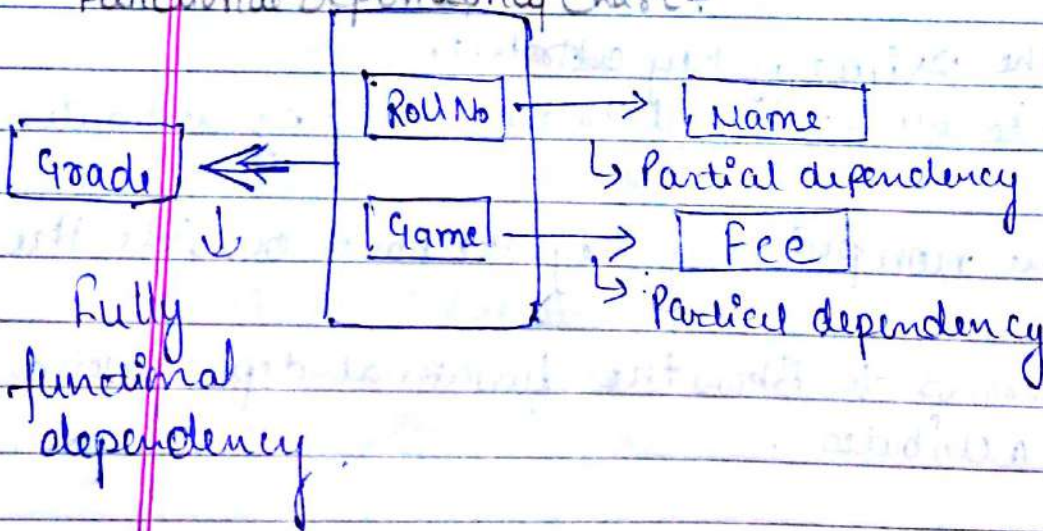 Functional Dependency Chart
RollNo
Name
Grade
Partial dependency
Game
Fee
Partical dependency
Fully
functional
dependency.